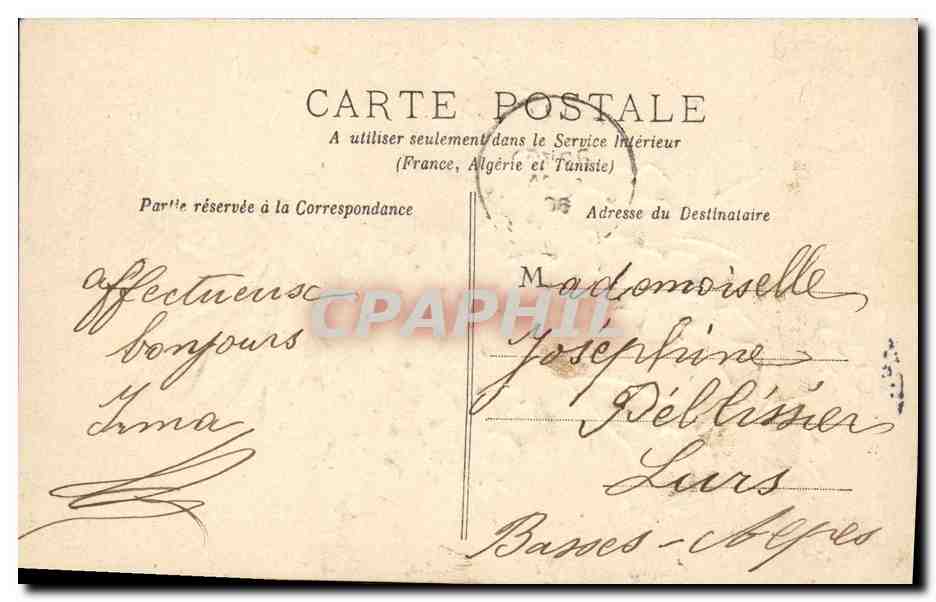 CARTE POSTALE
A utiliser seulement dans le Service Intérieur
(France, Algérie et Tunisie)
Partie réservée à la Correspondance
Adresse du Destinataire
affectueux
bonjours
Irma
Mademoiselle
Joséphine
Péllissier
Lurs
Basses-Alpes
CPAPHIL
06